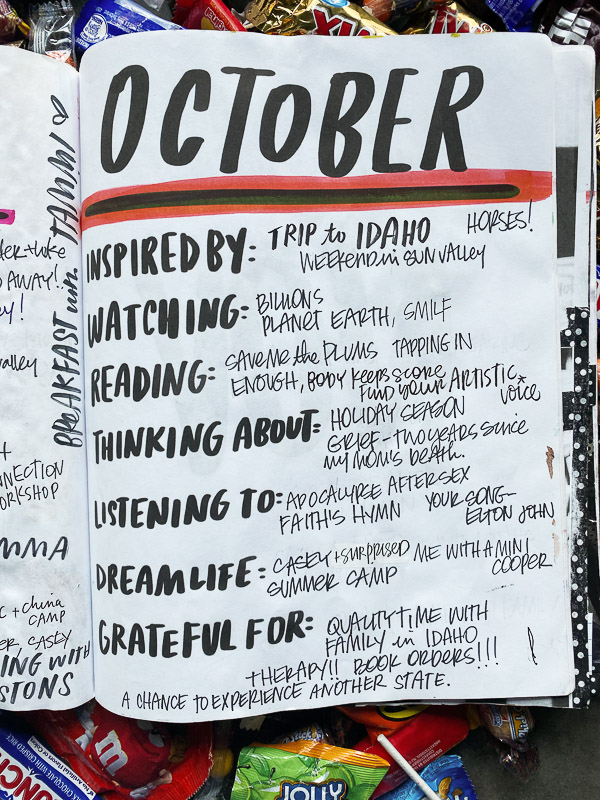 OCTOBER
INSPIRED BY: TRIP to IDAHO HORSES!
WEEKEND in SUN VALLEY
WATCHING: BILLIONS
PLANET EARTH, SMILF
READING: SAVE ME the PLUMS TAPPING IN
ENOUGH, BODY KEEPS SCORE
FIND YOUR ARTISTIC voice
THINKING ABOUT: HOLIDAY SEASON
GRIEF - TWO YEARS SINCE
MY MOM'S DEATH.
LISTENING TO: APOCALYPSE AFTERSEX
FAITH'S HYMN YOUR SONG -
ELTON JOHN
DREAM LIFE: CASEY + SURPRISED ME WITH A MINI
COOPER
SUMMER CAMP
GRATEFUL FOR: QUALITY TIME WITH
FAMILY in IDAHO
THERAPY!! BOOK ORDERS!!!
A CHANCE TO EXPERIENCE ANOTHER STATE.
BREAKFAST w/ TAMMI
AWAY!
alley
NNECTION
ORKSHOP
MMA
C + china
CAMP
ER, CASEY
ING WITH
STONS
m
JOLLY
UNCH
TWIX